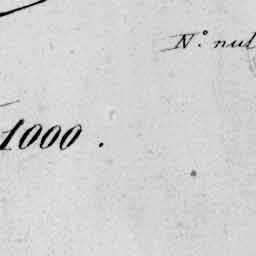 N.º nul
1000 .